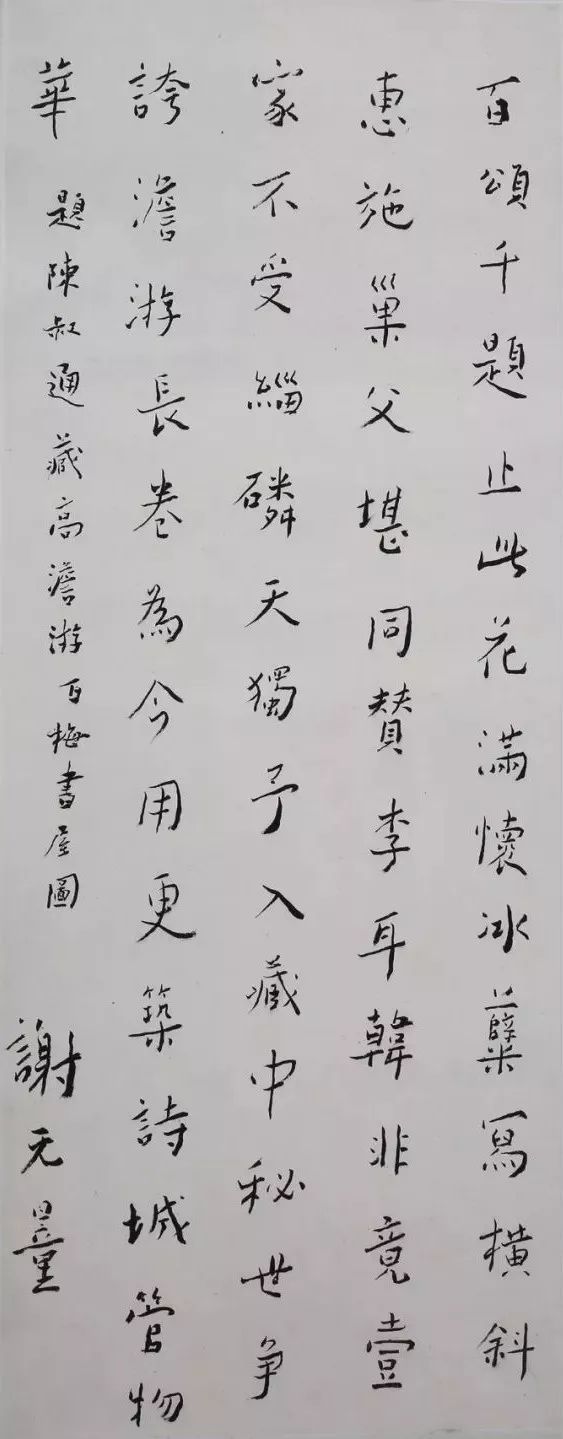 百頌千題止此花滿懷冰蘖寫橫斜
惠施巢父堪同贊李耳韓非竟壹
家不受緇磷天獨予入藏中秘世爭
誇澹游長卷為今用更築詩城管物
華
題陳叔通藏高澹游百梅書屋圖
謝无量